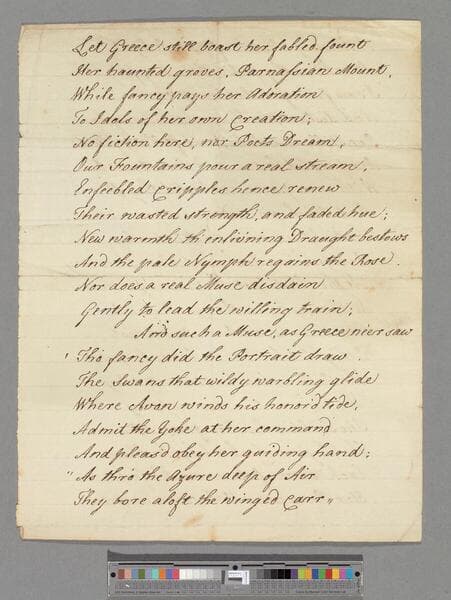 Let Greece still boast her fabled fount
Her haunted groves, Parnassian Mount,
While fancy pays her Adoration
To Idols of her own Creation;
No fiction here, nor Poets Dream,
Our Fountains pour a real stream,
Enfeebled Cripples hence renew
Their wasted strength, and faded hue;
New warmth th' enliv'ning Draught bestows
And the pale Nymph regains the Rose.
Nor does a real Muse disdain
Gently to lead the willing train;
And such a Muse, as Greece ne'er saw
Tho' fancy did the Portrait draw.
The Swans that wildy warbling glide
Where Avon winds his honor'd tide,
Admit the Yoke at her command
And pleas'd obey her guiding hand;
"As thro' the Azure deep of Air
They bore aloft the winged Carr"